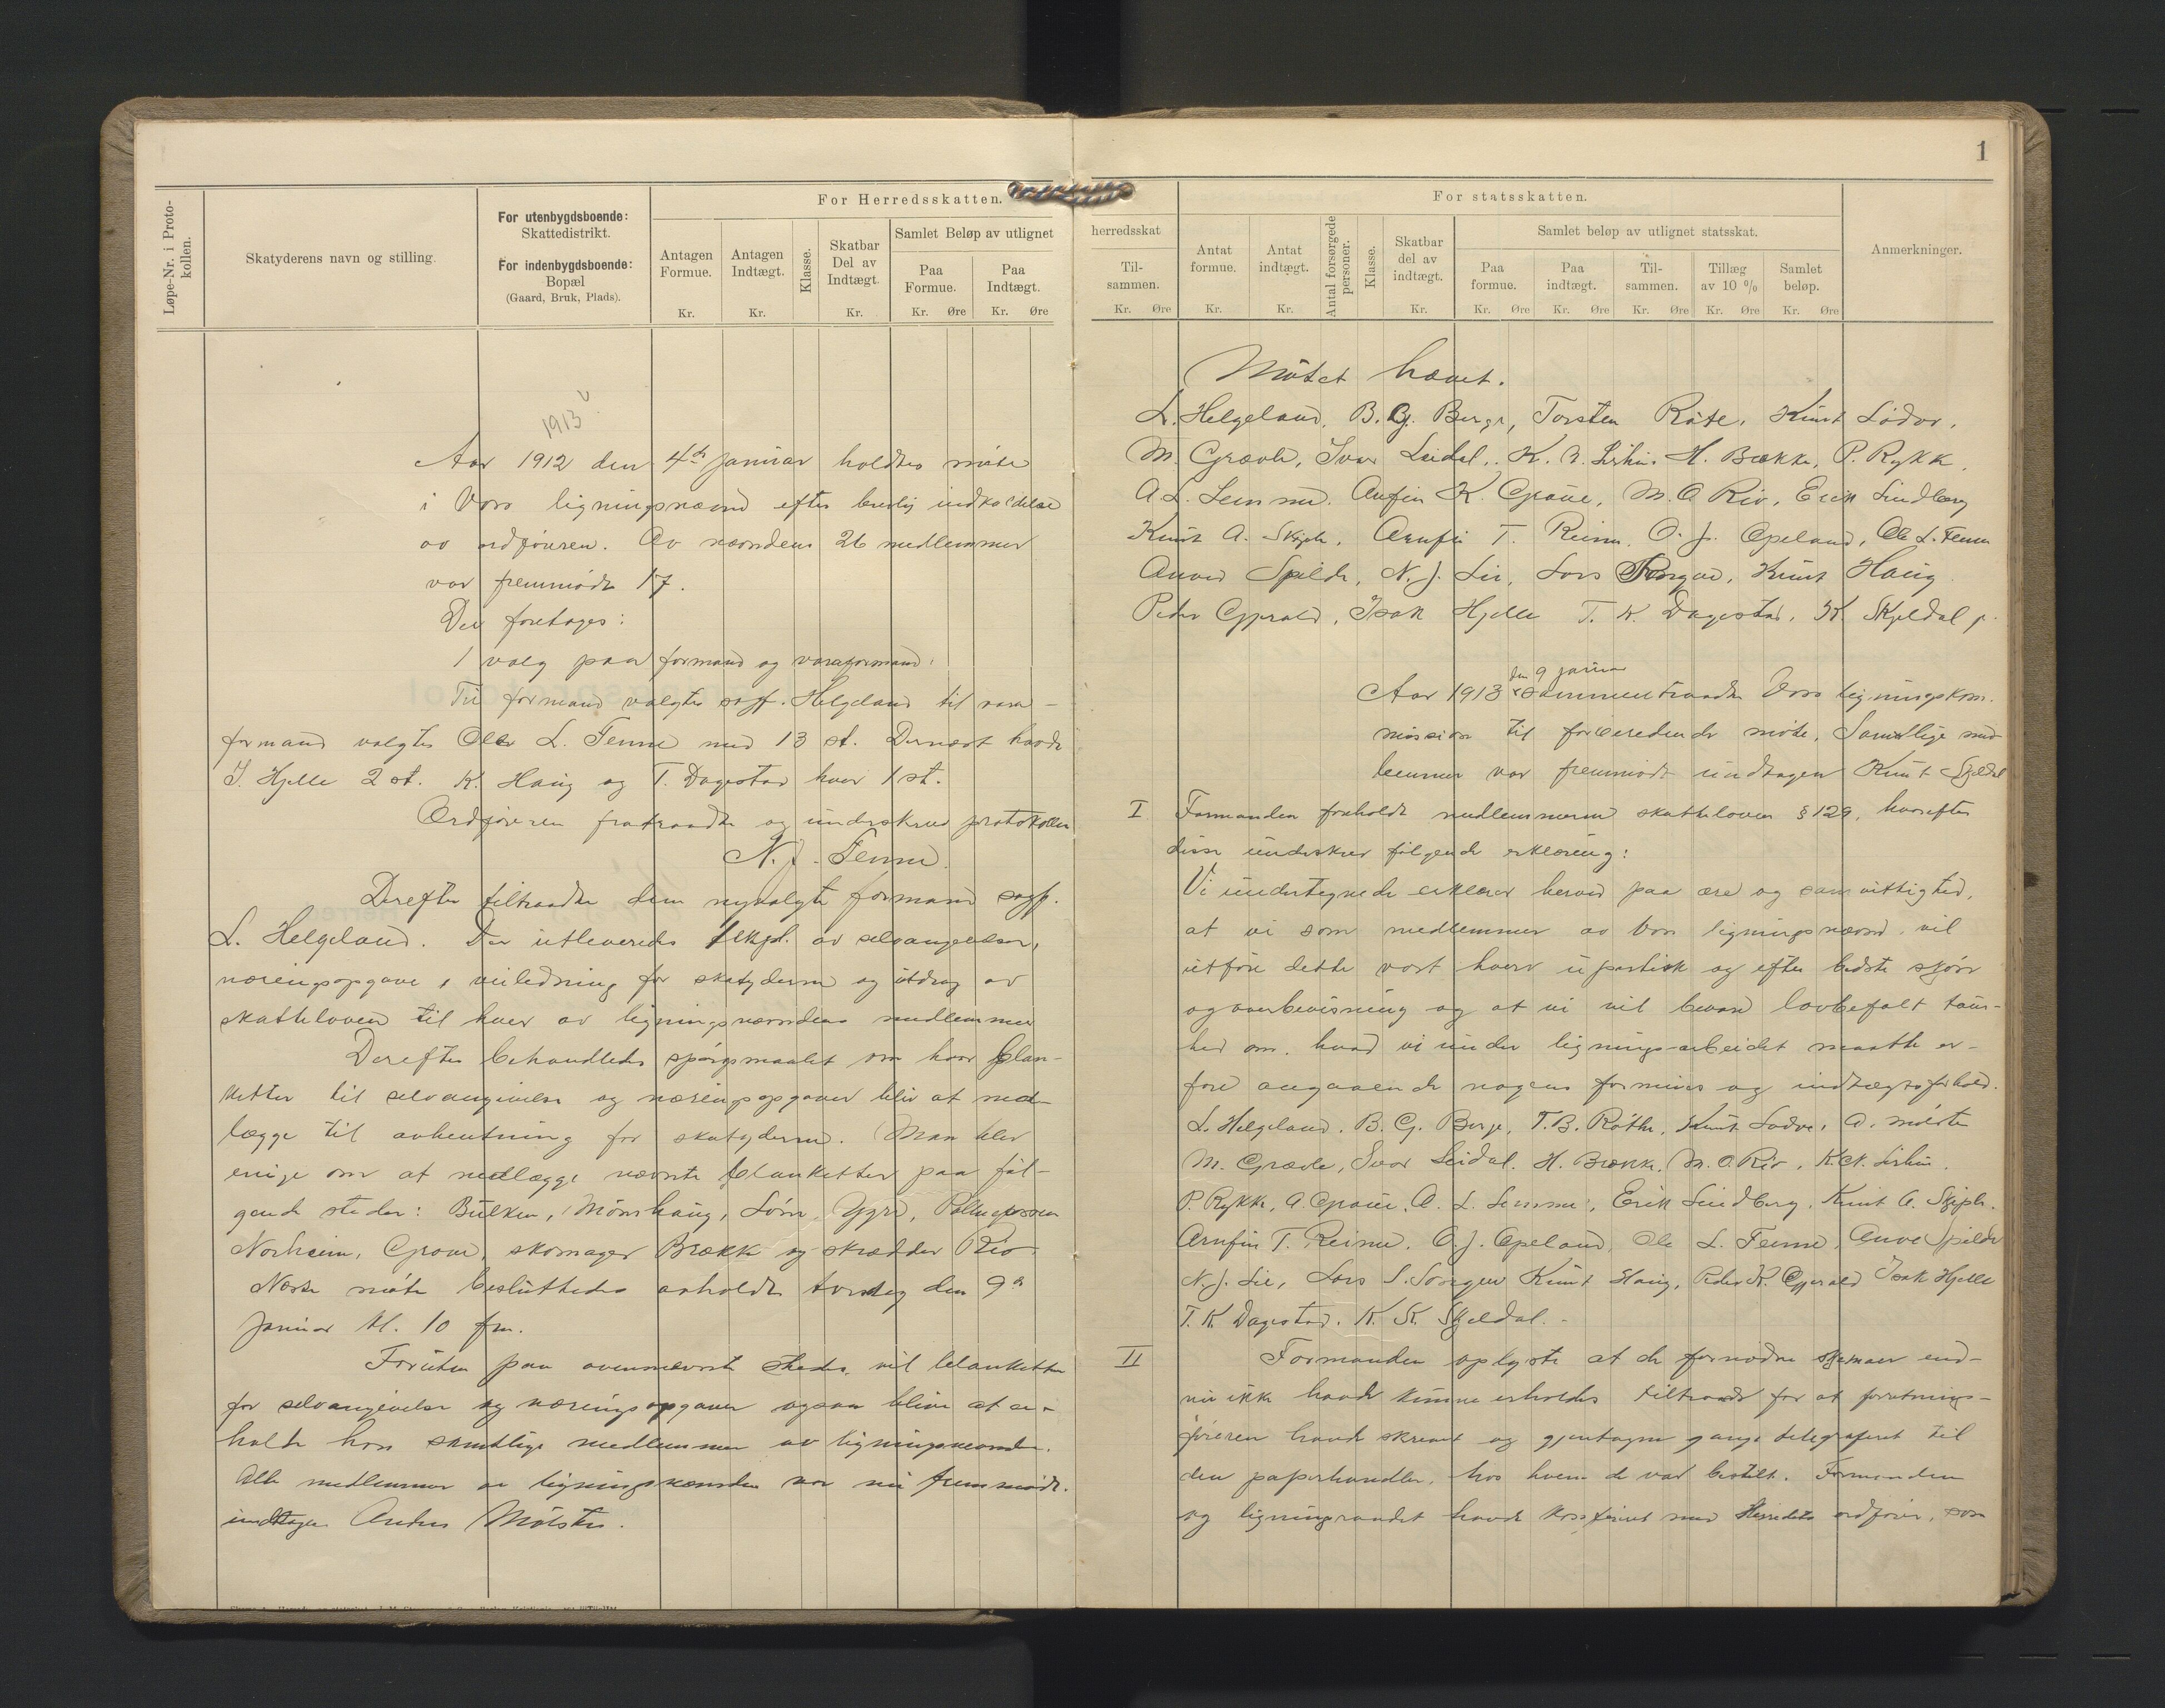 1
Løpe-Nr. i Proto-
kollen.
Skatyderens navn og stilling.
For utenbygdsboende:
Skattedistrikt.
For indenbygdsboende:
Bopæl
(Gaard, Bruk, Plads).
For Herredsskatten.
Antagen
Formue.
Kr.
Antagen
Indtægt.
Kr.
Klasse.
Skatbar
Del av
Indtægt.
Kr.
Samlet Beløp av utlignet
Paa
Formue.
Kr. Øre
Paa
Indtægt.
Kr. Øre
1913
Aar 1912 den 4de januar holdtes møte
i Voss ligningsnævnd efter brevlig indkaldelse
av ordføreren. Av nævndens 26 medlemmer
var fremmødt 17.
Der foretages:
1 valg paa formand og varaformand:
Til formand valgtes sagf. Helgeland til vara-
formand valgtes Ole L. Tenne med 13 st. Dernæst havde
I. Hjelle 2 st. K. Haug og T. Dagestad hver 1 st.
Ordføreren fratraadte og underskrev protokollen
N. J. Tenne.
Derefter tiltraadte den nyvalgte formand sagf.
L. Helgeland. Der utleveredes 1 ekspl. av selvangivelser,
næringsopgave, veiledning for skatyderne og utdrag av
skatteloven til hver av ligningsnævndens medlemmer
Derefter behandledes spørgsmaalet om hvor blan-
ketter til selvangivelse og næringsopgaver blir at ned-
lægge til avhentning for skatyderne. Man blev
enige om at nedlægge nævnte blanketter paa føl-
gende steder: Bulken, Mønshaug, Løne, Ygre,
Norheim, Grove, skomager Brækk og skrædder Rio
Næste møte besluttedes avholdt torsdag den 9de
januar kl. 10 fm.
Foruten paa ovennævnte steder vil blanketter
for selvangivelse og næringsopgaver ogsaa blive at er-
holde hos samtlige medlemmer av ligningsnævnden.
Alle medlemmer av ligningsnævnden var nu fremmødt.
undtagen Anders Mølster.
herredsskat
Til-
sammen.
Kr. Øre
For statsskatten.
Antat
formue.
Kr.
Antat
indtægt.
Kr.
Antal forsørgede
personer.
Klasse.
Skatbar
del av
indtægt.
Kr.
Samlet beløp av utlignet statsskat.
Paa
formue.
Kr. Øre
Paa
indtægt.
Kr. Øre
Til-
sammen.
Kr. Øre
Tillæg
av 10 %
Kr. Øre
Samlet
beløp.
Kr. Øre
Anmerkninger.
Møtet hævet.
L. Helgeland, B. G. Berge, Torsten Røte, Knut Lødve,
M. Græve, Ivar Leidal, K. N. Lirhus H. Brække, P. Rykk,
A. L. Lemme. Anfin K. Graue, M. O Rio, Erik Lindberg
Knut A. Skiple, Arnfin T. Reime, O. J. Opeland, Ole L. Tenne
Anved Spilde, N. J. Lie, Lars Sorgve, Knut Haug
Peder Gjerald, Isak Hjelle T. K. Dagestad, K. Skjeldal
den 9 januar
Aar 1913 sammentraadte Voss ligningskom-
mission til forberedende møte. Samtlige med-
lemmer var fremmødt undtagen Knut Skjeldal
I Formanden foreholdt medlemmerne skatteloven § 129, hvorefter
disse underskrev følgende erklæring:
Vi undertegnede erklærer herved paa ære og samvittighed,
at vi som medlemmer av Voss ligningsnævnd vil
utføre dette vort hverv upartisk og efter bedste skjøn
og overbevisning og at vi vil bevare lovbefalt taus-
hed om, hvad vi under ligningsarbeidet maatte er-
fare angaaende nogens formues og indtægtsforhold.
L. Helgeland. B. G. Berge, T. B. Røthe, Knut Lødve, A. Mølster
M. Græve, Ivar Leidal. H. Brække, M. O. Rio, K. N. Lirhus.
P. Rykke, A. Graue, A. L. Lemme, Erik Lindberg. Knut A. Skiple.
Arnfin T. Reime. O. J. Opeland, Ole L. Tenne, Anve Spilde
N. J. Lie, Lars S. Sorgve Knut Haug, Peder K. Gjerald Isak Hjelle
T. K. Dagestad. K. K. Skjeldal.
II Formanden oplyste at de fornødne skemaer end-
nu ikke havde kunne erholdes tiltrods for at forretnings-
føreren havde skrevet og gjentagne gange telegraferet til
den papirhandler, hos hvem de var bestilt. Formanden
og ligningsraadet havde konfereret med Herredets ordfører, som